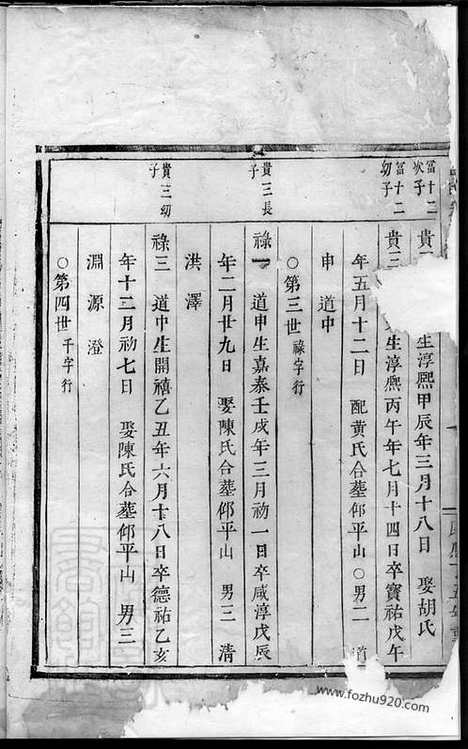 冨十二
次子
貴
生淳熙甲辰年三月十八日 娶胡氏
冨十二
幼子
貴三
生淳熙丙午年七月十四日卒寳祐戊午
年五月十二日 配黄氏合墓仰平山○男二 道
申 道中
○第三世 祿字行
貴三長
子
祿一 道申生嘉泰壬戌年三月初一日卒咸淳戊辰
年二月廿九日 娶陳氏合墓仰平山 男三 清
洪 澤
貴三幼
子
祿三 道中生開禧乙丑年六月十八日卒德祐乙亥
年十二月初七日 娶陳氏合墓仰平山 男三
淵 源 澄
○第四世 千字行
www.fozhu920.com